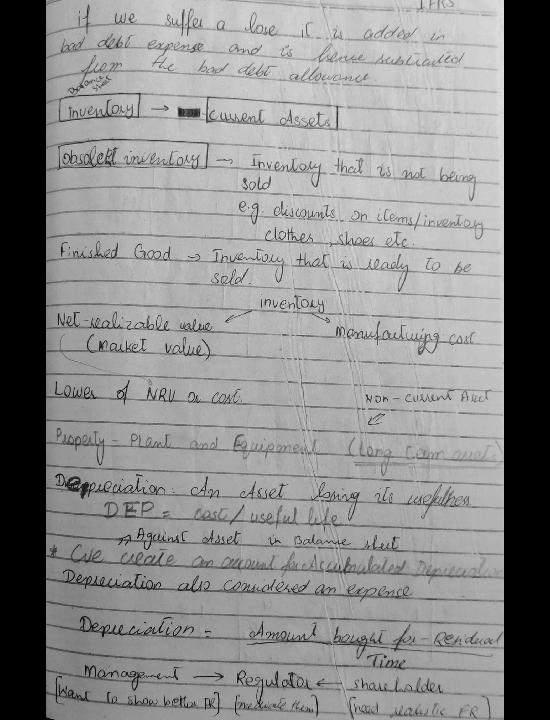 IFRS
if we suffer a loss it is added in
bad debt expense and is hence subtracted
from the bad debt allowance.
Balance Sheet
Inventory → Current Assets
obsolet inventory → Inventory that is not being
sold
e.g. discounts on items/inventory
clothes, shoes etc.
Finished Good → Inventory that is ready to be
sold.
inventory
Net-realizable value
manufacturing cost
(market value)
Lower of NRV or cost.
Non-current Asset
Property-Plant and Equipment (long term assets)
Depreciation: An Asset losing its usefulness
DEP = cost/useful life
Against Asset in Balance sheet
* We create an account for Accumulated Depreciation
Depreciation also considered an expense
Depreciation = Amount bought for - Residual
Time
Management → Regulator ← shareholder
[want to show better FR] [ them] [need realistic FR]